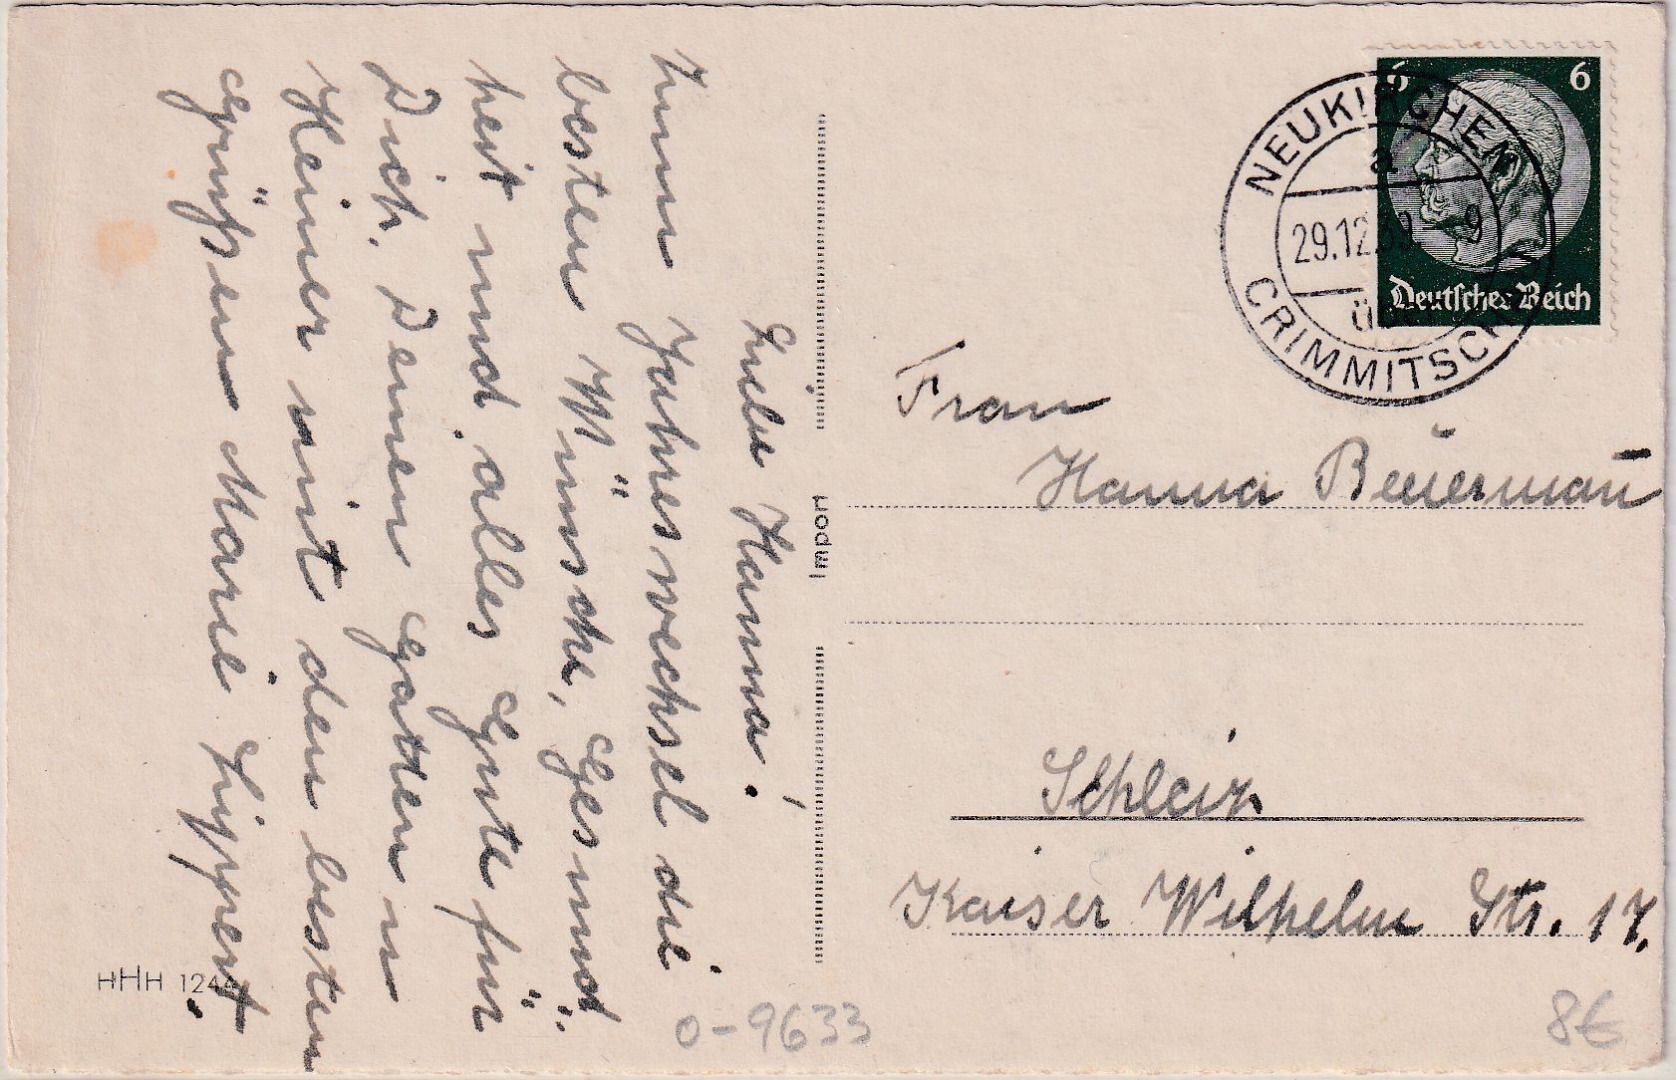 Liebe Hanna!
Zum Jahreswechsel die
besten Wünsche, Gesund-
heit und alles Gute für
Dich, Deinen Gatten u
Heiner mit den besten
Grüßen Marie Lippert.
Impon
6 6
Deutsches Reich
NEUKIRCHEN
a
29.12.39 9
CRIMMITSCH
Frau
Hanna Beuerman̄
Schleiz
Kaiser Wilhelm Str. 17.
HHH 124
0-9633
8€